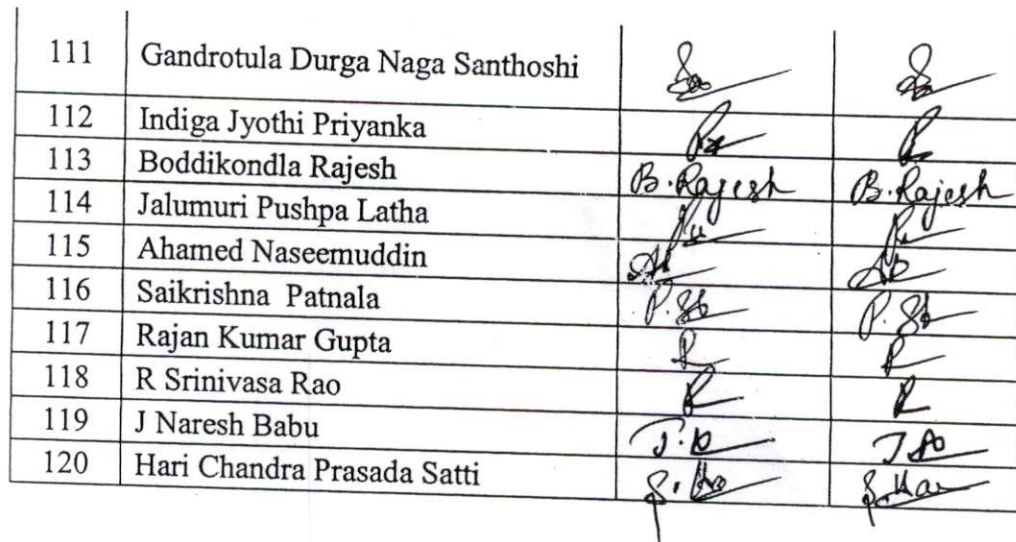 111 Gandrotula Durga Naga Santhoshi
112 Indiga Jyothi Priyanka
113 Boddikondla Rajesh B. Rajesh B. Rajesh
114 Jalumuri Pushpa Latha
115 Ahamed Naseemuddin
116 Saikrishna Patnala
117 Rajan Kumar Gupta
118 R Srinivasa Rao
119 J Naresh Babu
120 Hari Chandra Prasada Satti